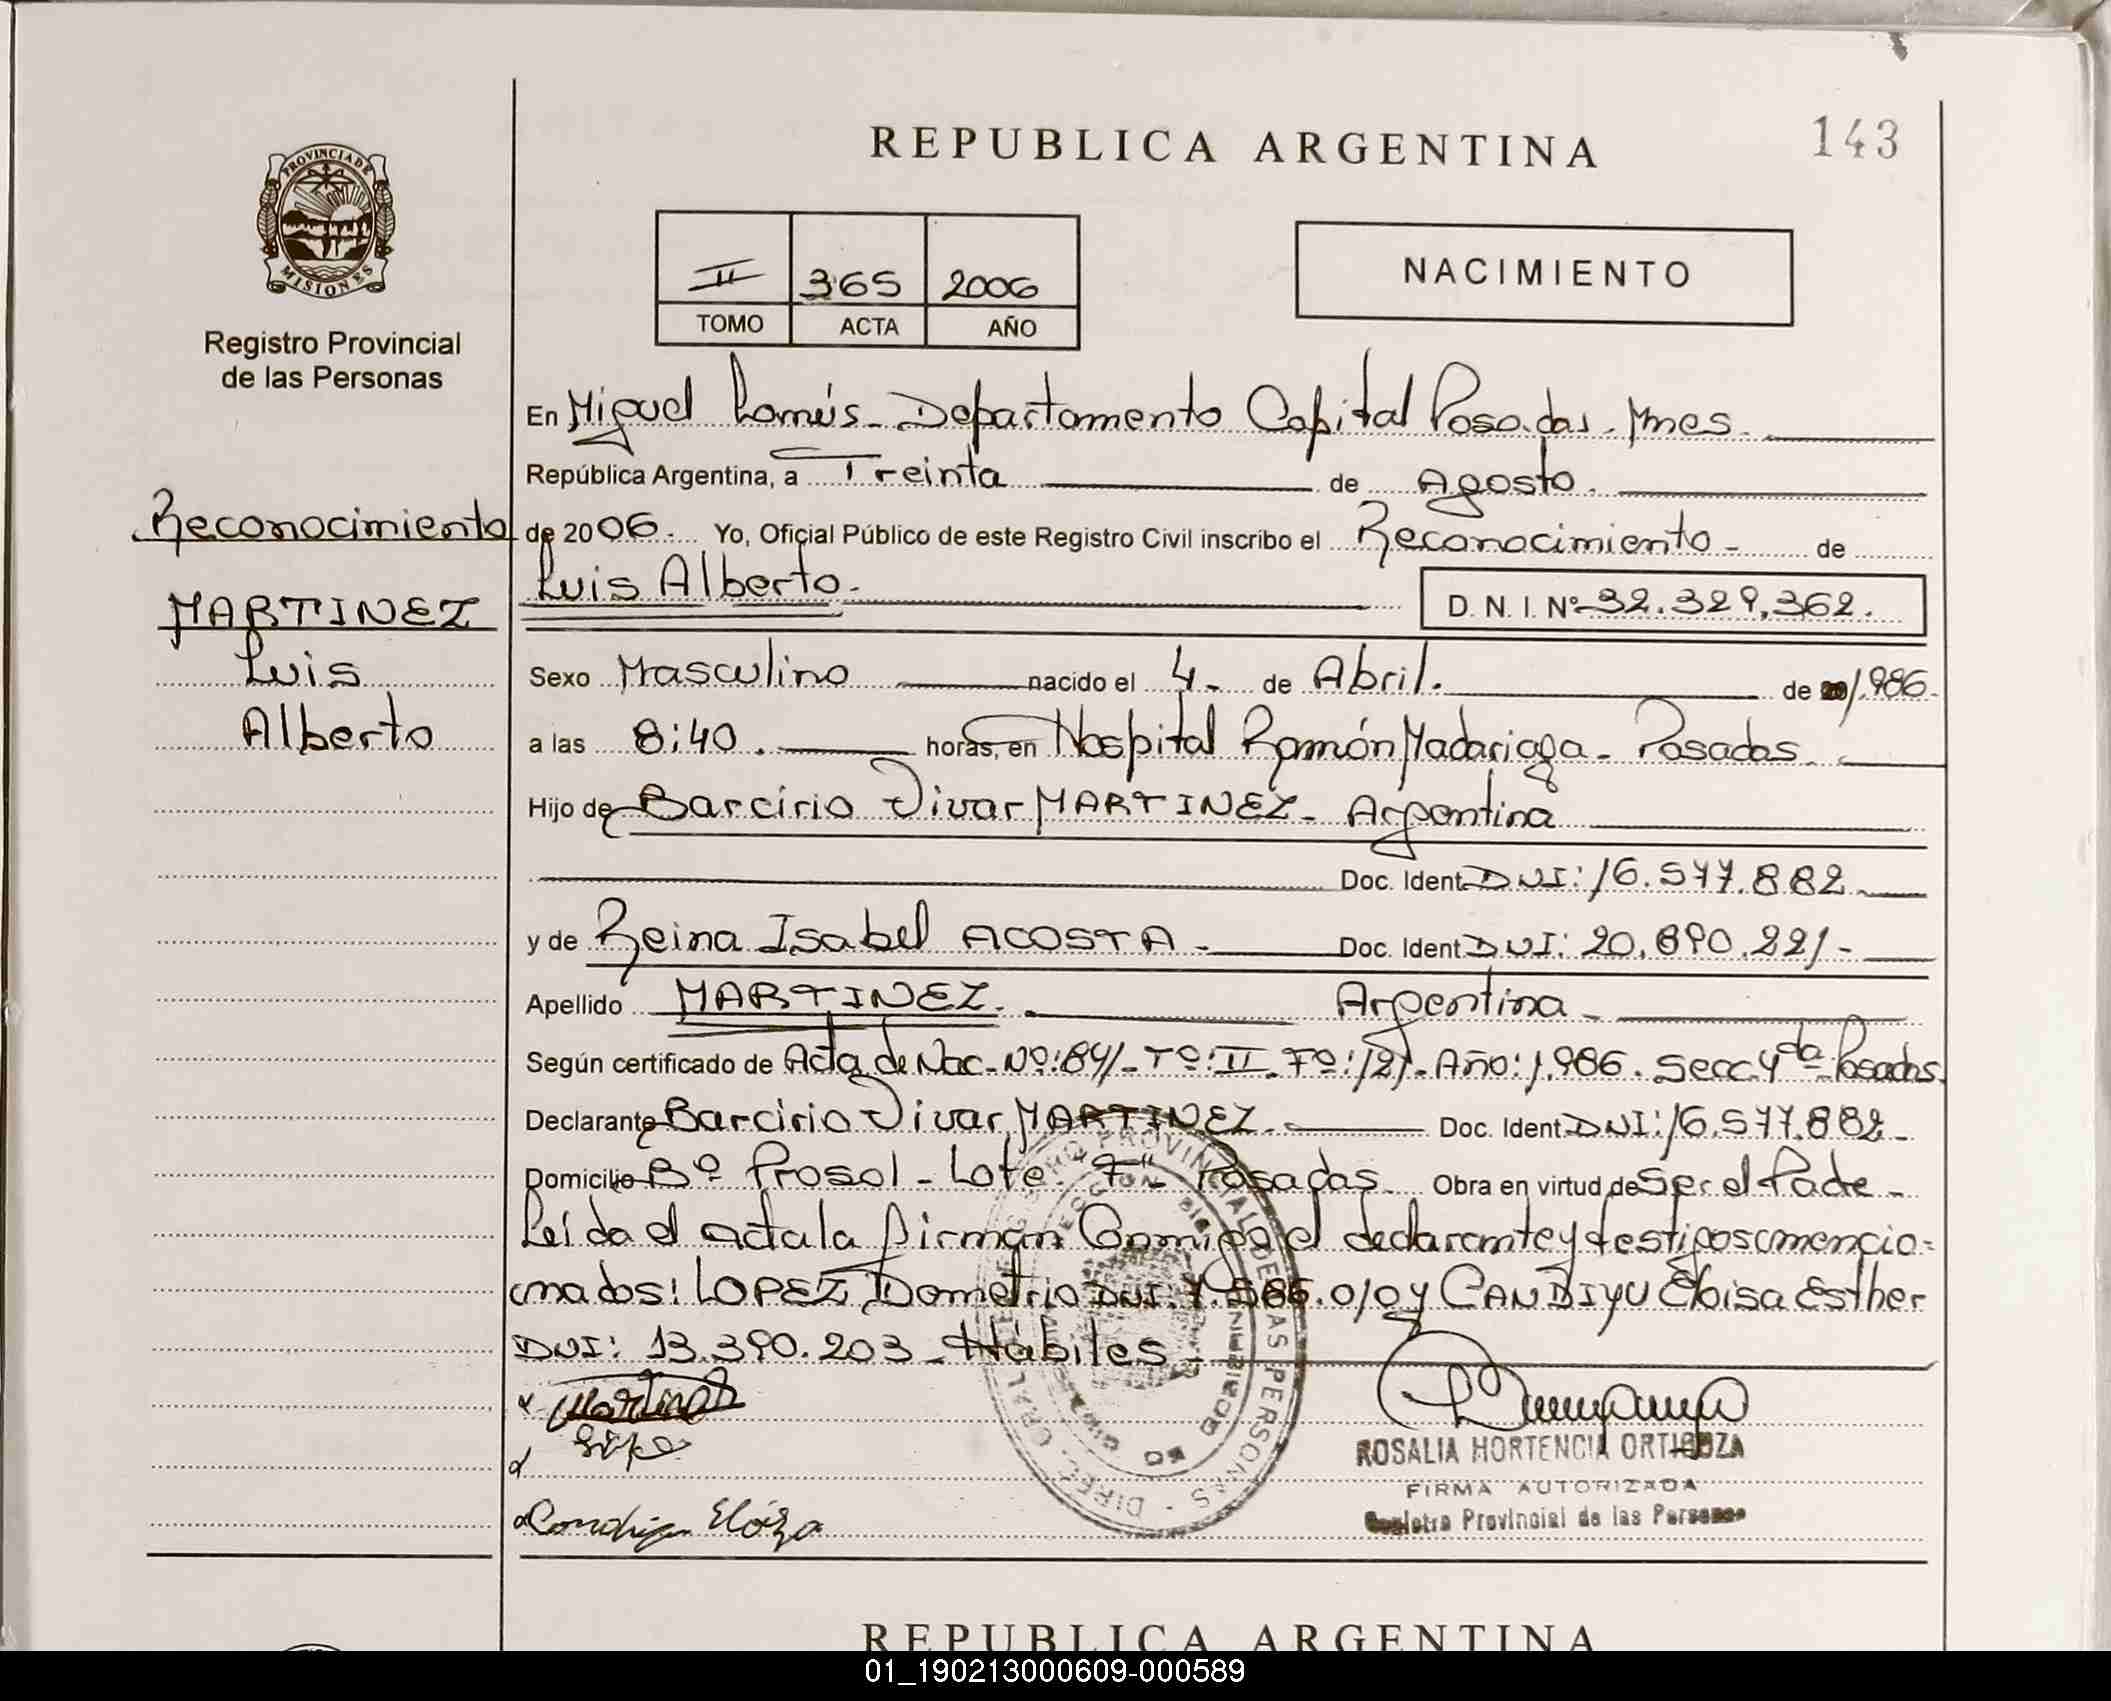 REPUBLICA ARGENTINA
143
PROVINCIA DE
MISIONES
Registro Provincial
de las Personas
II 365 2006
TOMO ACTA AÑO
NACIMIENTO
En Miguel Lanús - Departamento Capital Posadas - Mnes.
República Argentina, a Treinta de Agosto.
Reconocimiento
de 2006. Yo, Oficial Público de este Registro Civil inscribo el Reconocimiento - de
MARTINEZ
Luis
Alberto
Luis Alberto.
D. N. I. Nº 32.329.362.
Sexo Masculino nacido el 4 - de Abril. de 1.986.
a las 8:40. horas, en Hospital Ramón Madariaga - Posadas.
Hijo de Barcirio Vivar MARTINEZ - Argentina
Doc. Ident. DNI: 16.577.882
y de Reina Isabel ACOSTA - Doc. Ident. DNI: 20.890.221 -
Apellido MARTINEZ. Argentina -
Según certificado de Acta de Nac. Nº: 841 - Tº: II. Fº: 121 - Año: 1.986. Secc 4da Posadas.
Declarante Barcirio Vivar MARTINEZ. Doc. Ident. DNI: 16.577.882 -
Domicilio Bº Prosol - Lote "7" - Posadas. Obra en virtud de ser el Padre -
Leída el acta la firman Conmigo el declarante y testigos mencio=
nados: LOPEZ Dometrio DNI: 7.566.010 y CANDIYU Eloisa Esther
DNI: 13.390.203 - Hábiles -
Martinez
ROSALIA HORTENCIA ORTIGOZA
FIRMA AUTORIZADA
Registro Provincial de las Personas
REPUBLICA ARGENTINA
01_190213000609-000589